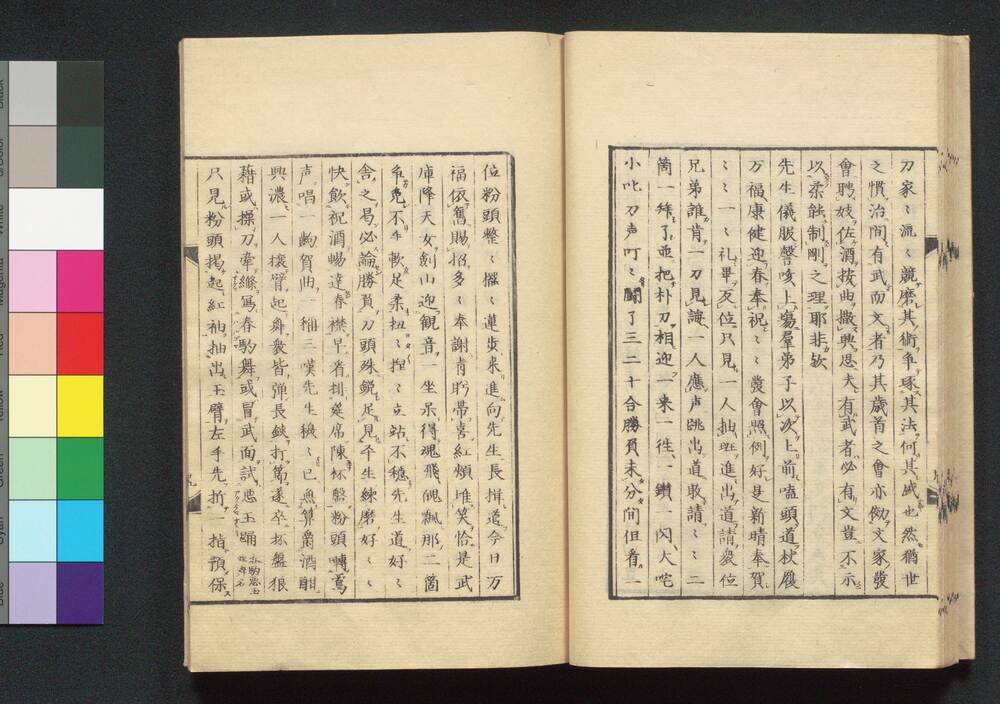 刀家〻流〻競磨其術争琢其法何其盛也然猶世
之慣治間有武而文者乃其歳首之會亦倣文家發
會聘妓佐酒按曲撒興思夫有武者必有文豈不示
以柔蝕制剛之理耶非欤
先生儀服謦咳上塲羣弟子以次上前嗑頭道杖履
万福康健迎春奉祝〻〻發會照例好是新晴奉賀
〻〻一〻礼畢反位只見一人抽班進出道請衆位
兄弟誰肯一刀見誨一人應声跳出道敢請〻〻二
箇一斉了並把朴刀相迎一来一徃一鑚一閃大咤
小叱刀声叮〻闘了三二十合勝負未分間但看一
位粉頭整〻擺〻蓮歩来進向先生長揖道今日万
福依舊賜招多〻奉謝肯眄帯喜紅頰堆笑恰是武
庫降天女剣山迎観音一坐呆得魂飛魄飄那二箇
免不手軟足柔扭〻捏〻立站不穏先生道好〻
舎之易必論勝負刀頭殊鋭足見平生練磨好〻〻
快飲祝酒暢達春襟早看排筵席陳杯盤粉頭囀鴬
声唱一齣賀曲一稱三嘆先生稱〻已無算爵酒酣
興濃一人攘臂起舞衆皆弾長鋏打節遂卒杯盤狼
藉或操刀牽縧冩春駒舞或冒武面試悪玉踊
只見粉頭掲起紅袖抽出玉臂左手先折一指預保